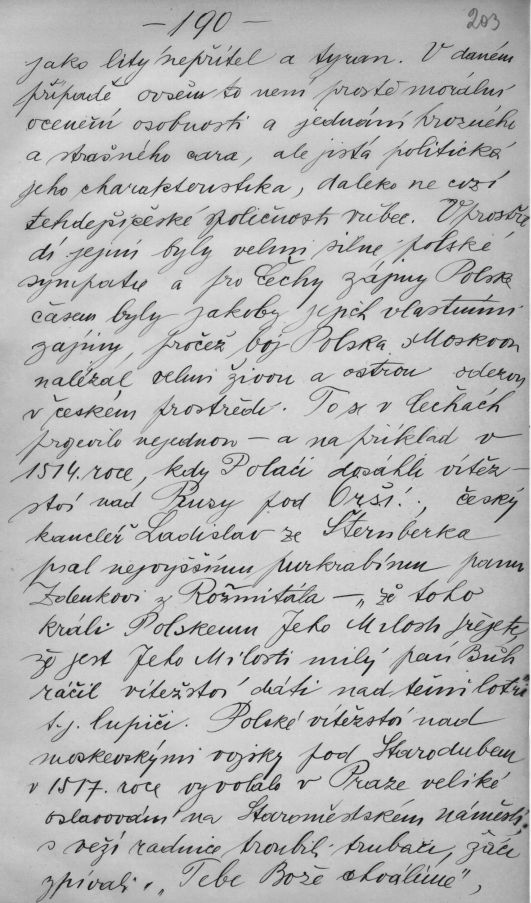 — 190 —
203
jako litý nepřítel a tyran. V daném
případě ovšem to není prostě morální
ocenění osobnosti a jednání hrozného
a strašného cara, ale jistá politická
jeho charakteristika, daleko ne cizí
tehdejší české společnosti vůbec. V prostře
dí jejím byly velmi silné polské
sympatie a pro Čechy zájmy Polska
časem byly jakoby jejich vlastními
zájmy, pročež boj Polska s Moskvou
nalézal velmi živou a ostrou odezvu
v českém prostředí. To se v Čechách
projevilo nejednou — a na příklad v
1514. roce, kdy Poláci dosáhli vítěz-
ství nad Rusy pod Orší, český
kancléř Ladislav ze Šternberka
psal nejvyššímu purkrabímu panu
Zdenkovi z Rožmitála — „že toho
králi Polskému Jeho Milosti přejete,
že jest Jeho Milosti milý pan Bůh
ráčil vítězství dáti nad těmi lotři"
t.j. lupiči. Polské vítězství nad
moskevskými vojsky pod Starodubem
v 1517. roce vyvolalo v Praze veliké
oslavování na Staroměstském náměstí,
s věží radnice troubili trubači, žáci
zpívali „Tebe Bože chválíme",